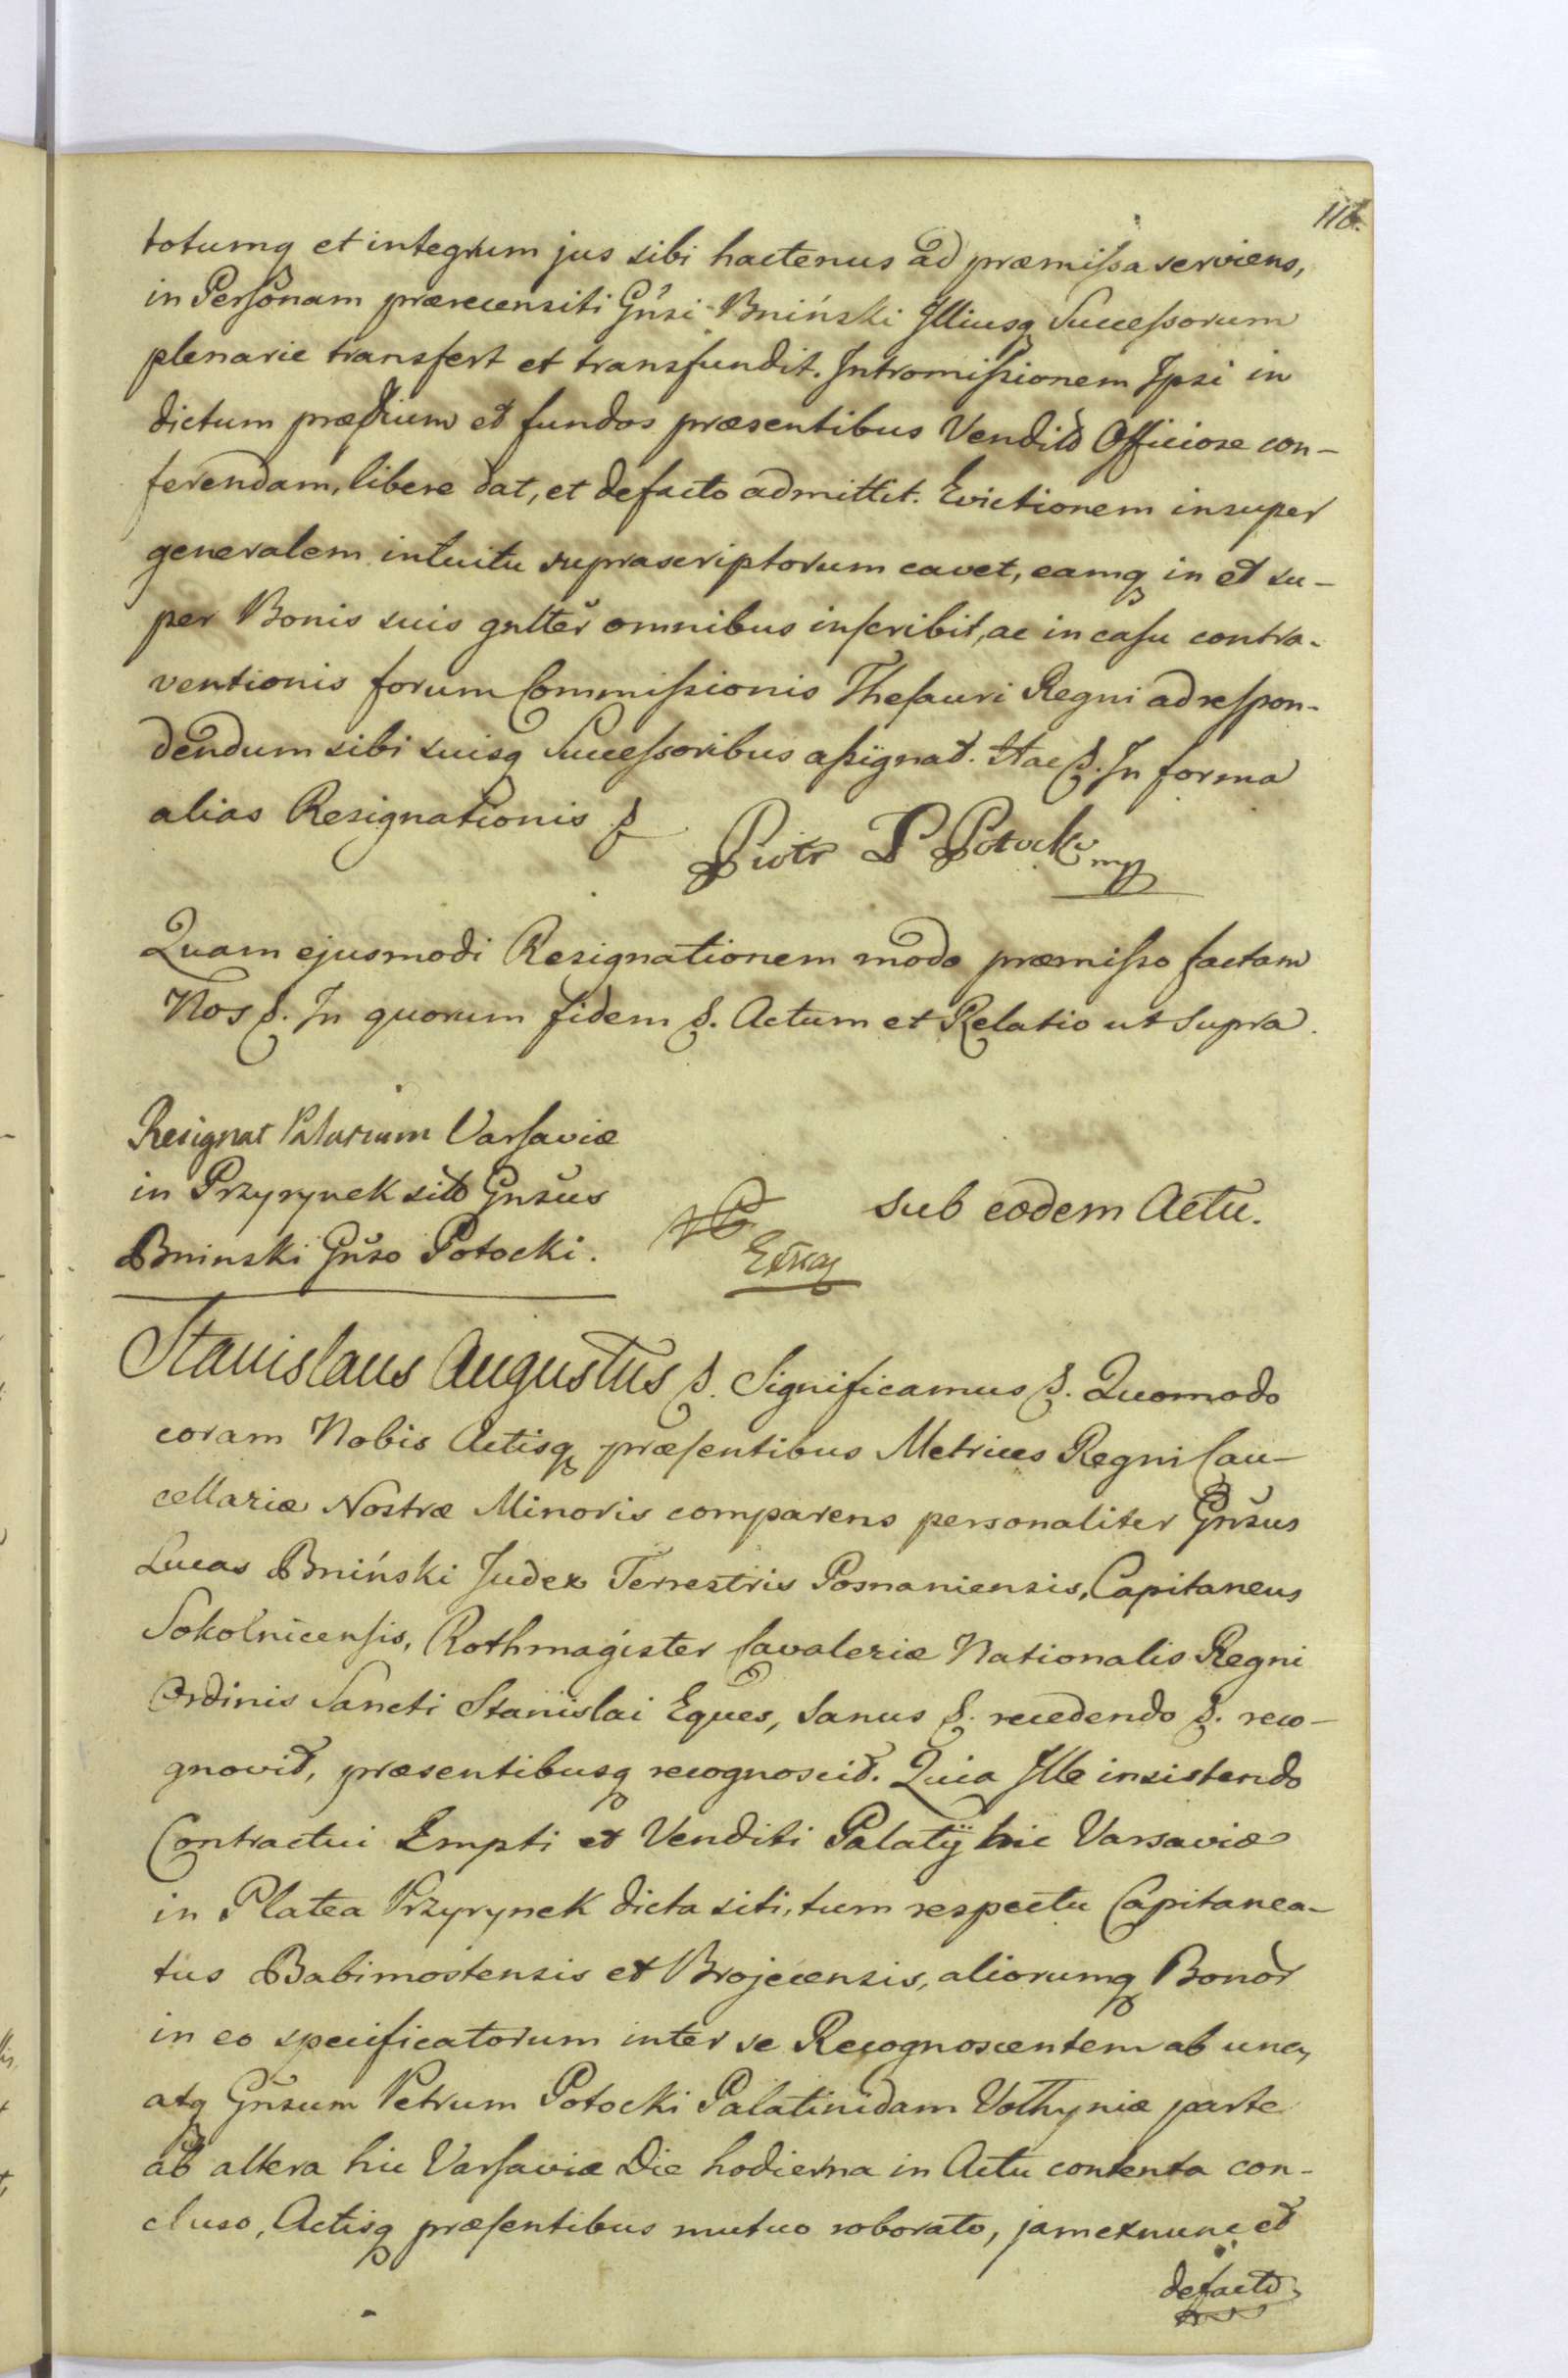 116.
totumq et integrum jus sibi hactenus ad præmissa serviens,
in Personam prærecensiti Gnsi Bniński Illiusq Successorum
plenarie transfert et transfundit. Intromissionem Ipsi in
dictum prædium et fundos præsentibus Vendito Officiose con-
ferendam, libere dat, et defacto admittit. Evictionem insuper
generalem intuitu suprascriptorum cavet, eamq in et su-
per Bonis suis gnlter omnibus inscribit, ac in casu contra-
ventionis forum Commissionis Thesauri Regni ad respon-
dendum sibi suisq Successoribus assignat. Hac &. In forma
alias Resignationis &
Piotr P Potocki mp
Quam ejusmodi Resignationem modo præmisso factam
Nos &. In quorum fidem &. Actum et Relatio ut Supra.
Resignat Palatium Varsaviæ
in Przyrynek sito Gnsus
Bninski Gnso Potocki.
Extrad
sub eodem Actu.
Stanislaus Augustus &. Significamus &. Quomodo
coram Nobis Actisq præsentibus Metrices Regni Can-
cellariæ Nostræ Minoris comparens personaliter Gnsus
Lucas Bniński Judex Terrestris Posnaniensis, Capitaneus
Sokolnicensis, Rothmagister Cavaleriæ Nationalis Regni
Ordinis Sancti Stanislai Eques, Sanus &. recedendo &. reco-
gnovit, præsentibusq recognoscit. Quia Ille insistendo
Contractui Empti et Venditi Palatÿ hic Varsaviæ
in Platea Przyrynek dicta siti, tum respectu Capitanea-
tus Babimostensis et Brojecensis, aliorumq Bonor
in eo specificatorum inter se Recognoscentem ab una,
atq Gnsum Petrum Potocki Palatinidam Volhyniæ parte
ab altera hic Varsaviæ Die hodierna in Actu contenta con-
cluso, Actisq præsentibus mutuo roborato, jam exnunc et
defacto